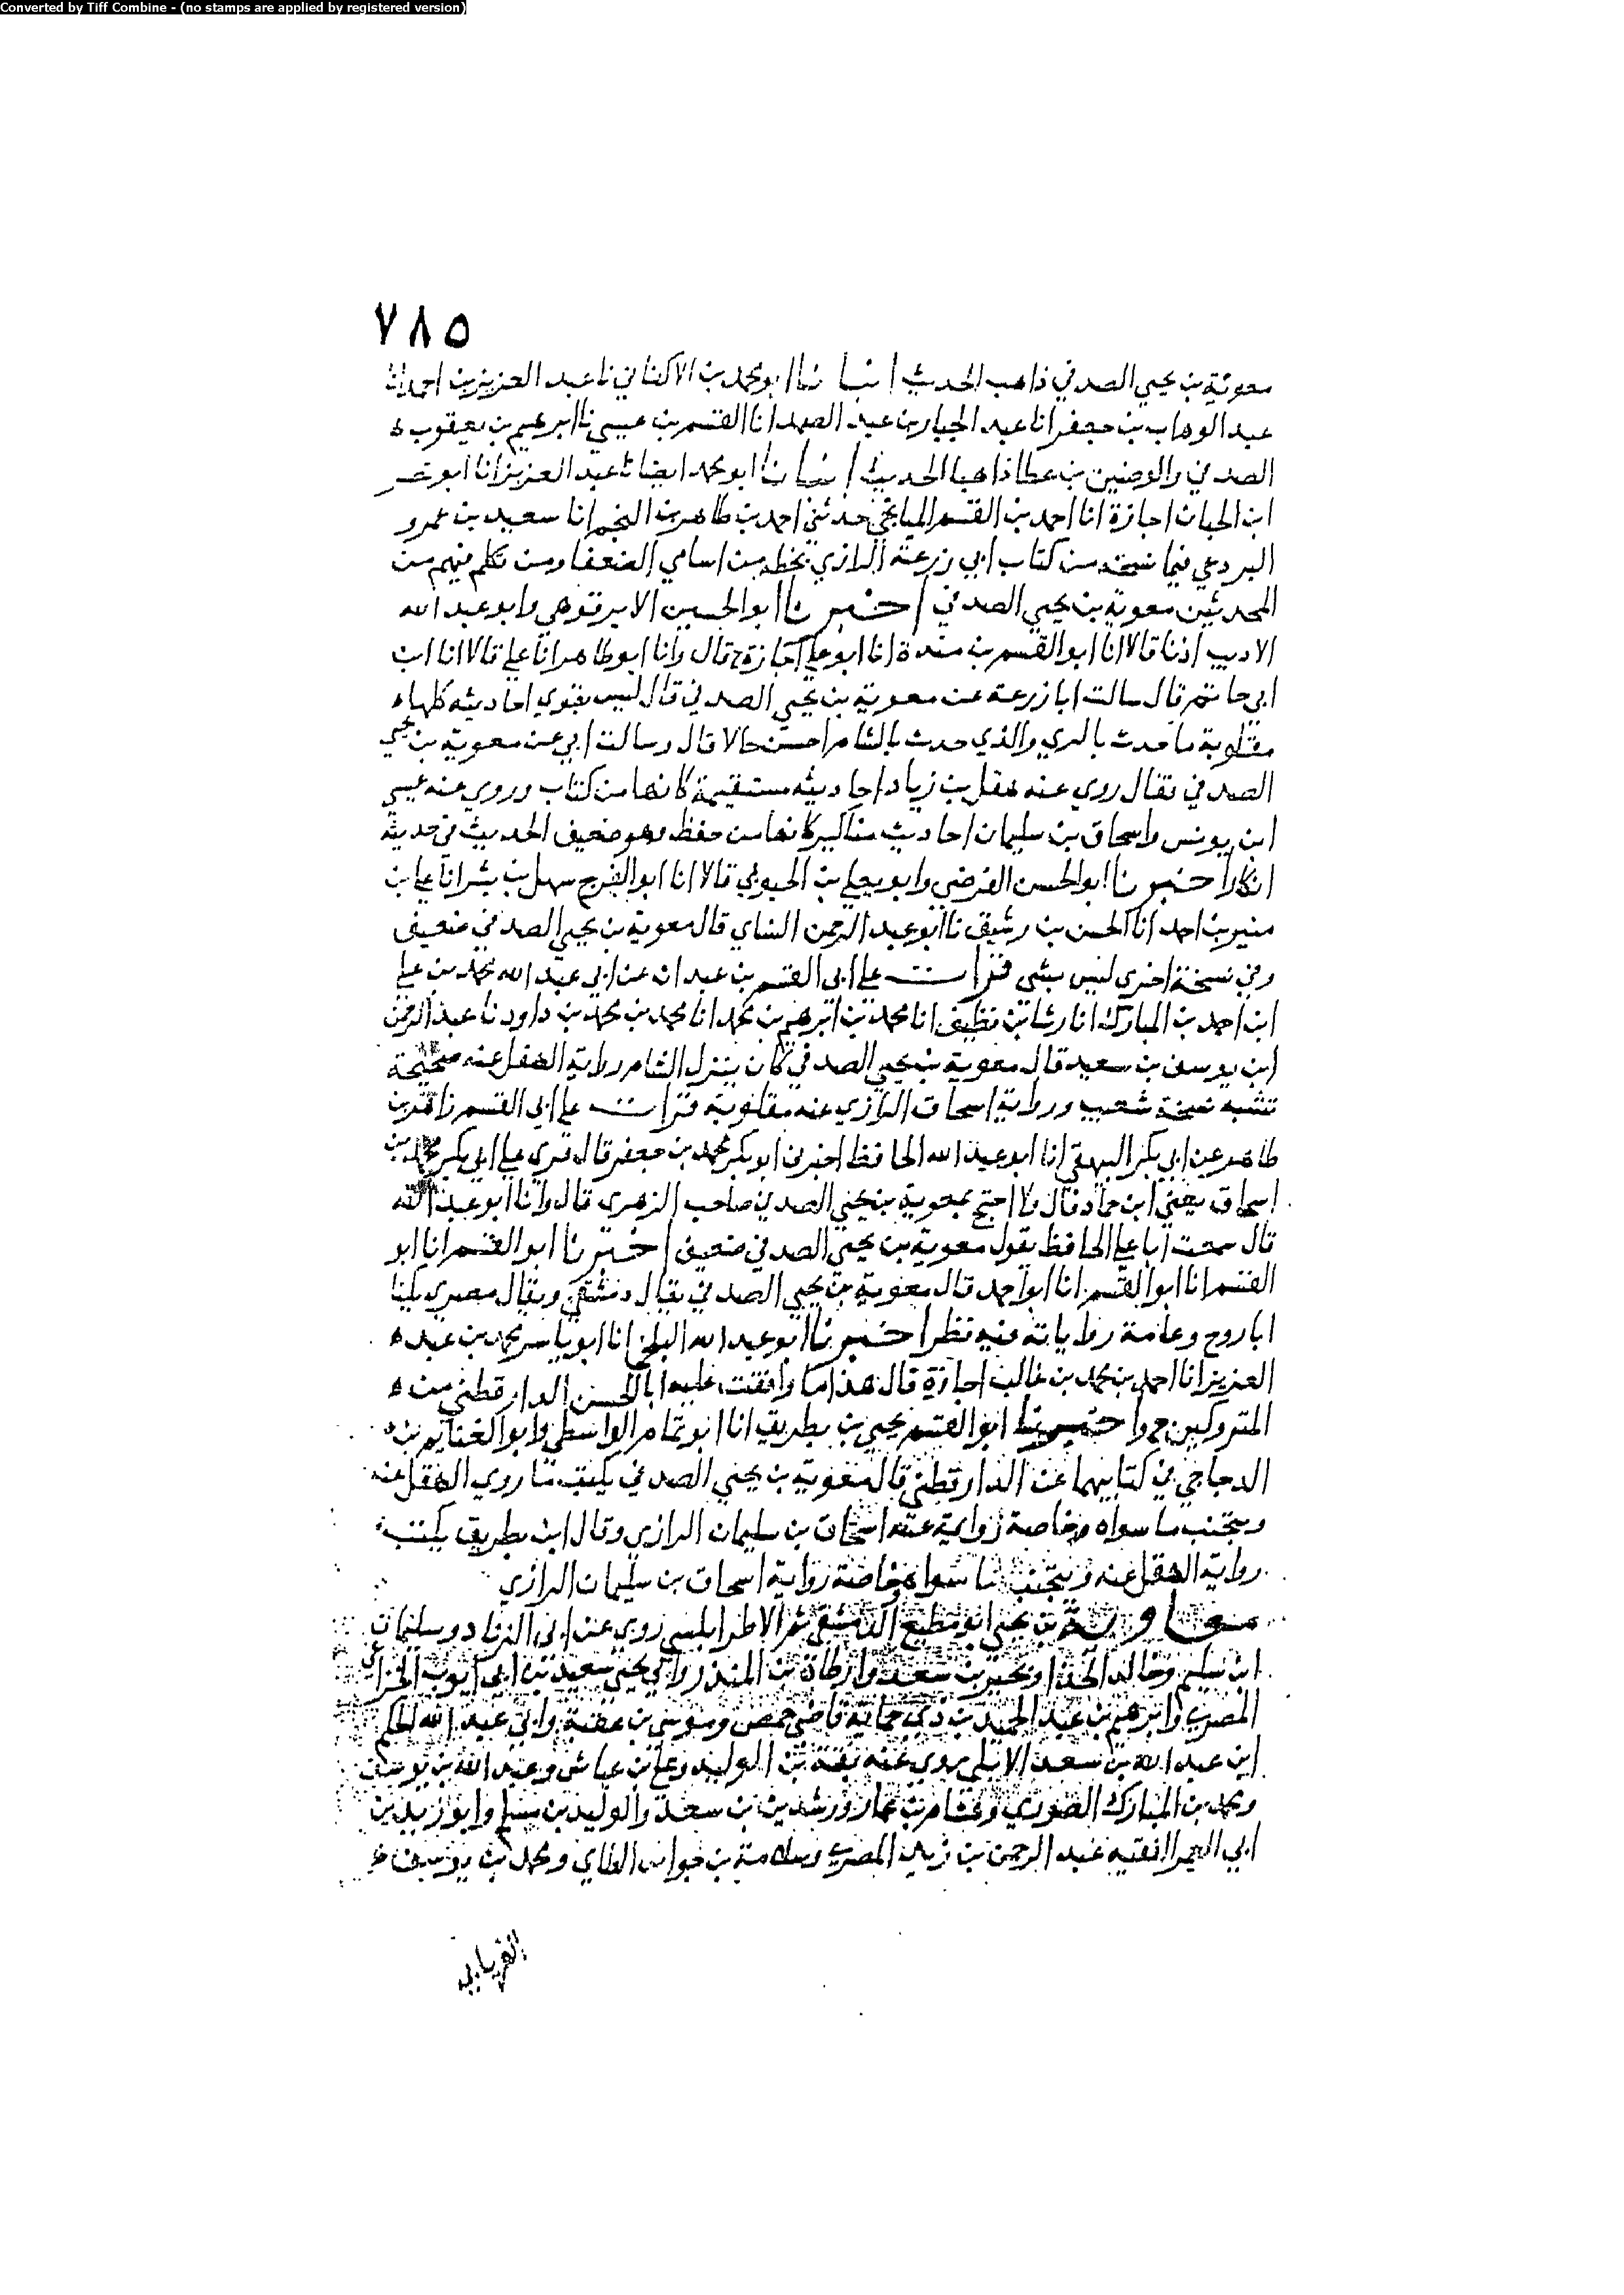 Converted by Tiff Combine - (no stamps are applied by registered version)
٧٨٥
معوية بن يحيى الصدفي ذاهب الحديث انبانا ابو محمد بن الاكفاني نا عبد العزيز بن احمد انا
عبد الوهاب بن جعفر انا عبد الجبار بن عبد الصمد انا القسم بن عيسى نا ابرهيم بن يعقوب ه
الصدفي والوضين بن عطا ذاهبا الحديث انبانا ابو محمد ايضا نا عبد العزيز انا ابو نصر
ابن الجبان اجازة انا احمد بن القسم الميانجي حدثني احمد بن طاهر بن النجم انا سعيد بن عمرو
البردعي فيما نسخته من كتاب ابي زرعة الرازي بخطه من اسامي الضعفا ومن تكلم فيهم من
المحدثين معوية بن يحيى الصدفي اخبرنا ابو الحسين الابرقوهي وابو عبد الله
الاديب اذنا قالا انا ابو القسم بن مندة انا ابو علي اجازة ح قال وانا ابو طاهر انا علي قالا انا ابن
ابي حاتم قال سالت ابا زرعة عن معوية بن يحيى الصدفي قال ليس بقوي احاديثه كلها ه
مقلوبة ما حدث بالري والذي حدث بالشام احسن حالا قال وسالت ابي عن معوية بن يحيى
الصدفي فقال روى عنه هقل بن زياد احاديثه مستقيمة كانها من كتاب وروى عنه عيسى
ابن يونس واسحاق بن سليمان احاديث مناكير كانها من حفظه وهو ضعيف الحديث في حديثه
انكار اخبرنا ابو الحسن الفرضي وابو يعلى بن الحبوبي قالا انا ابو الفرج سهل بن بشر انا علي بن
منير بن احمد انا الحسن بن رشيق نا ابو عبد الرحمن النساي قال معوية بن يحيى الصدفي ضعيف
وفي نسخة اخرى ليس بشي قرات على ابي القسم بن عبدان عن ابي عبد الله محمد بن علي
ابن احمد بن المبارك انا رشا بن نظيف انا محمد بن ابرهيم بن محمد انا محمد بن محمد بن داود نا عبد الرحمن
ابن يوسف بن سعيد قال معوية بن يحيى الصدفي كان ينزل الشام رواية الهقل عنه صحيحة
تشبه نسخة شعيب ورواية اسحاق الرازي عنه مقلوبة قرات على ابي القسم زاهر بن
طاهر عن ابي بكر البيهقي انا ابو عبد الله الحافظ اخبرني ابو بكر محمد بن جعفر قال قري على ابي بكر محمد بن
اسحاق يعني ابن حماد قال لا احتج بمعوية بن يحيى الصدفي صاحب الزهري قال وانا ابو عبد الله
قال سمعت ابا علي الحافظ يقول معوية بن يحيى الصدفي ضعيف اخبرنا ابو القسم انا ابو
القسم انا ابو القسم انا ابو احمد قال معوية بن يحيى الصدفي يقال دمشقي ويقال مصري يكنا
ابا روح وعامة رواياته فيه نظر اخبرنا ابو عبد الله البلخي انا ابو ياسر محمد بن عبد ه
العزيز انا احمد بن محمد بن غالب اجازة قال هذا ما وافقت عليه ابا الحسن الدارقطني من ه
المتروكين ح واخبرنا ابو القسم يحيى بن بطريق انا ابو تمام الواسطي وابو الغنايم بن ه
الدجاجي في كتابيهما عن الدارقطني قال معوية بن يحيى الصدفي يكتب ما روى الهقل عنه
ويجتنب ما سواه وخاصة رواية عنه اسحاق بن سليمان الرازي وقال ابن بطريق يكتب
رواية الهقل عنه ويتجنب ما سواه وخاصة رواية اسحاق بن سليمان الرازي
معاوية بن يحيى ابو مطيع الدمشقي ثم الاطرابلسي روى عن ابي الزناد وسليمان
ابن سليم وخالد الحذا وبحير بن سعد وارطاة بن المنذر وابي يحيى سعيد بن ابي ايوب الخزاعي
المصري وابرهيم بن عبد الحميد بن ذي حماية قاضي حمص وموسى بن عقبة وابي عبد الله الحكم
ابن عبد الله بن سعد الايلي روى عنه بقية بن الوليد وعلي بن عياش وعبد الله بن يوسف
ومحمد بن المبارك الصوري وهشام بن عمار ورشدين بن سعد والوليد بن مسلم وابو زيد بن
ابي الغمر الفقيه عبد الرحمن بن زيد المصري وسلامة بن جواس الطاي ومحمد بن يوسف
الفريابي